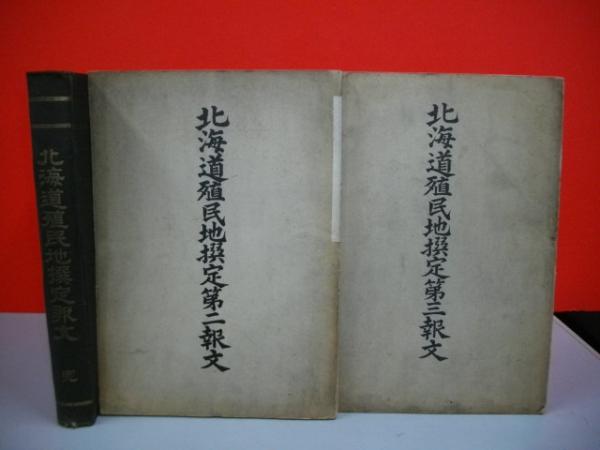 北海道殖民地撰定報文
完
北海道殖民地撰定第二報文
北海道殖民地撰定第三報文